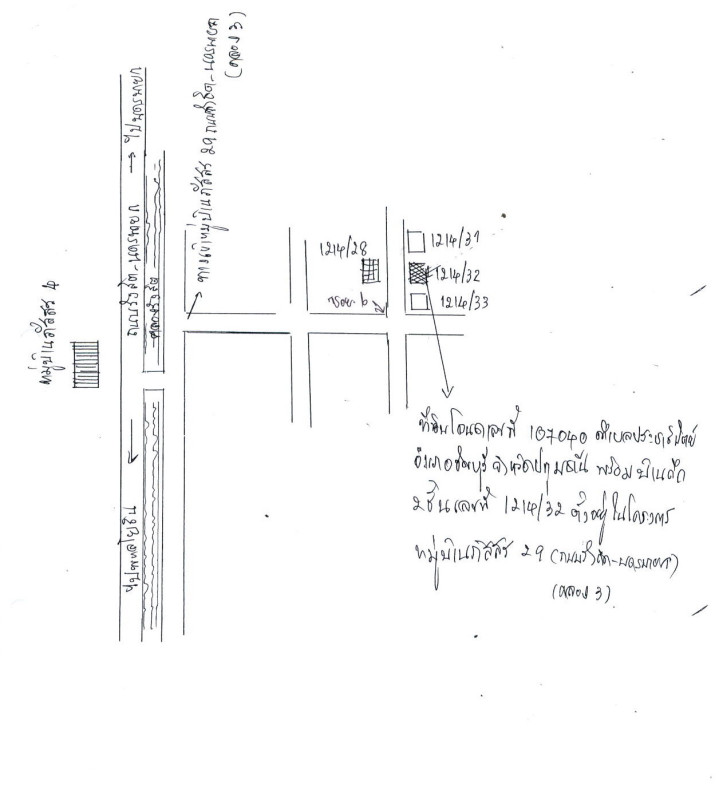 หมู่บ้านภัสสร 4
ไปพหลโยธิน
ถนนรังสิต-นครนายก
ไปนครนายก
คลองรังสิต
ทางเข้าหมู่บ้านภัสสร 29 ถนนรังสิต-นครนายก
(คลอง 3)
1214/28
ซอย 6
1214/31
1214/32
1214/33
ที่ดินโฉนดเลขที่ 107040 ตำบลประชาธิปัตย์
อำเภอธัญบุรี จังหวัดปทุมธานี พร้อมบ้านตึก
2 ชั้น เลขที่ 1214/32 ตั้งอยู่ในโครงการ
หมู่บ้านภัสสร 29 (ถนนรังสิต-นครนายก)
(คลอง 3)